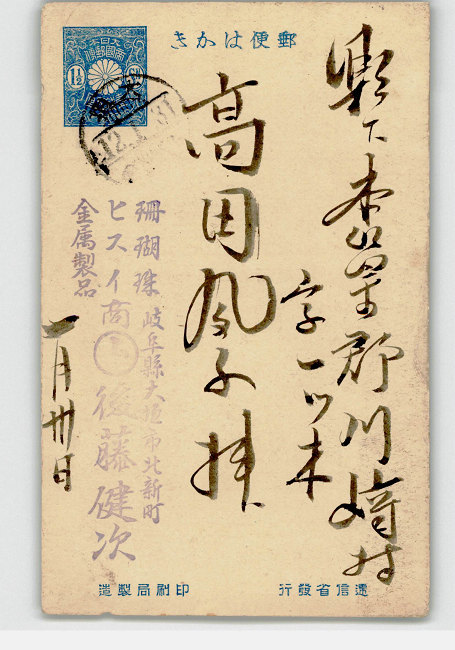 郵便はかき
大日本
帝國郵便
1½
大垣
12.1.31
縣下本巣郡川崎村
字一ツ木
高田風子様
珊瑚珠
ヒスイ商
金属製品
岐阜縣大垣市北新町
後藤健次
一月卅日
遞信省發行
印刷局製造